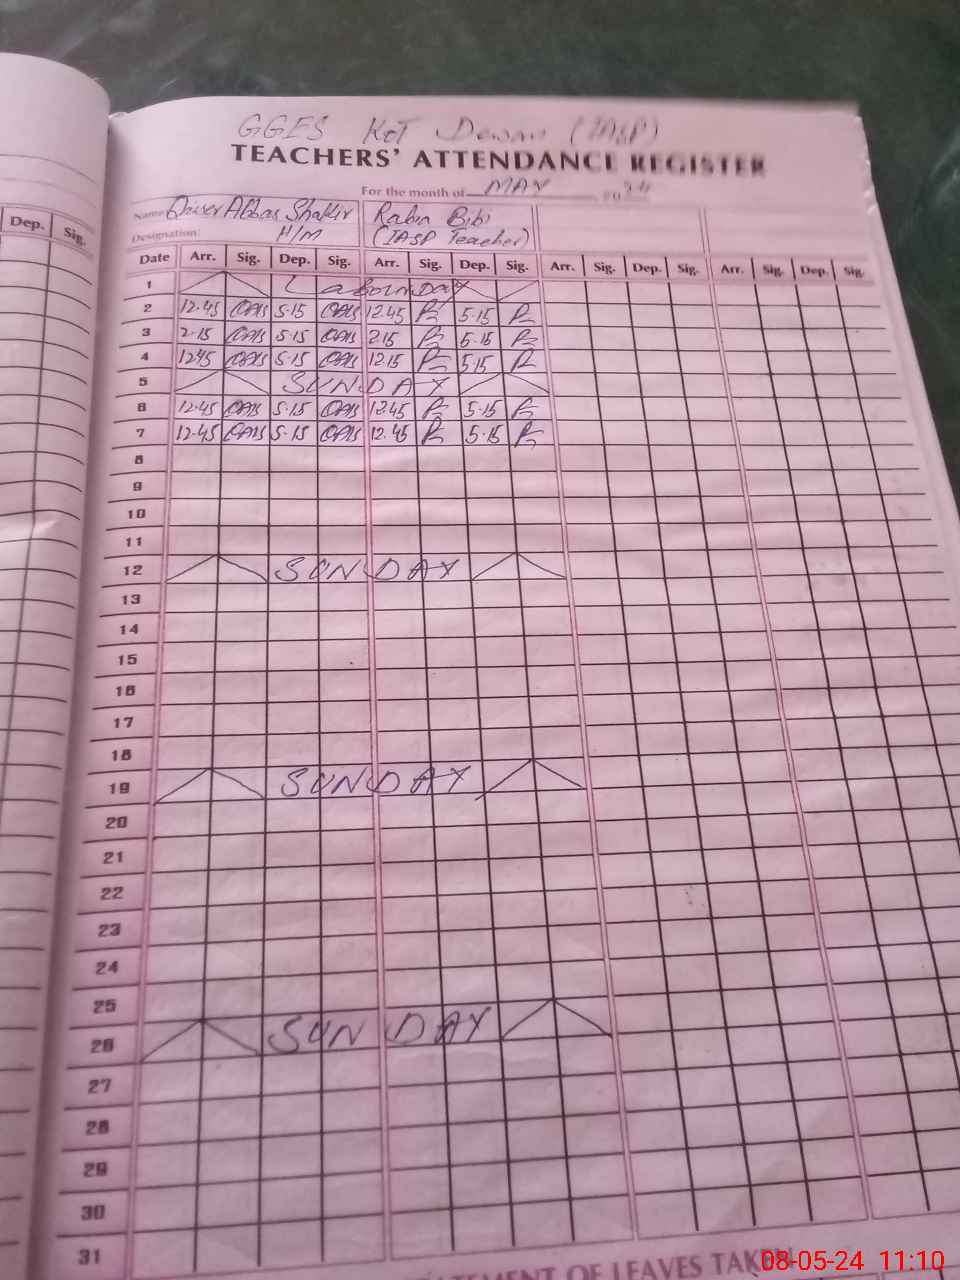 GGES Kot Dewan (IASP)
TEACHERS' ATTENDANCE REGISTER
For the month of MAY, 2024
Name: Qaiser Abbas Shakir Rabia Bibi
Designation: H/M (IASP Teacher)
Dep. Sig.
Date Arr. Sig. Dep. Sig. Arr. Sig. Dep. Sig. Arr. Sig. Dep. Sig. Arr. Sig. Dep. Sig.
1 Labour DAY
2 12.45 QAS 5.15 QAS 12.45 5.15
3 2.15 QAS 5.15 QAS 2.15 5.15
4 1245 QAS 5.15 QAS 12.15 5.15
5 SUNDAY
6 12.45 QAS 5.15 QAS 12.45 5.15
7 12.45 QAS 5.15 QAS 12.45 5.15
8
9
10
11
12 SUNDAY
13
14
15
16
17
18
19 SUNDAY
20
21
22
23
24
25
26 SUNDAY
27
28
29
30
31
OF LEAVES TAKEN
08-05-24 11:10